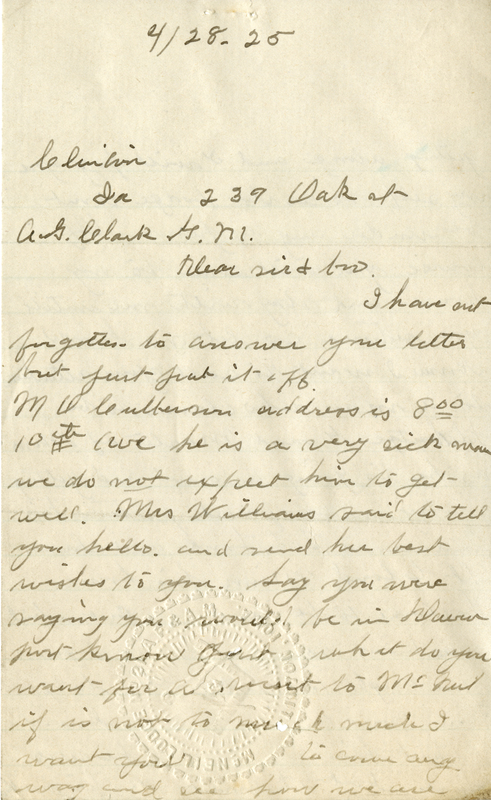 4/28-25
Clinton
Ia 239 Oak st
A.G. Clark G.M.
Dear sir & bro.
I have not
forgotten to answer your letter
but just put it off.
M Culberson address is 800
10th Ave he is a very sick man
we do not expect him to get
well. Mrs Williams said to tell
you hello. and send her best
wishes to you. Say you were
saying you would be in Daven
port know what do you
want for a visit to Mc Neil
if is not to much I
want you to come any
way and see how we are